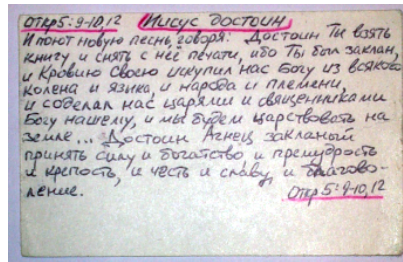 Откр 5:9-10,12 Иисус достоин
И поют новую песнь, говоря: Достоин Ты взять
книгу и снять с неё печати, ибо Ты был заклан,
и Кровию Своею искупил нас Богу из всякого
колена и языка, и народа и племени,
и соделал нас царями и священниками
Богу нашему, и мы будем царствовать на
земле... Достоин Агнец закланый
принять силу и богатство, и премудрость
и крепость, и честь и славу, и благово-
ление.
Откр 5:9-10,12